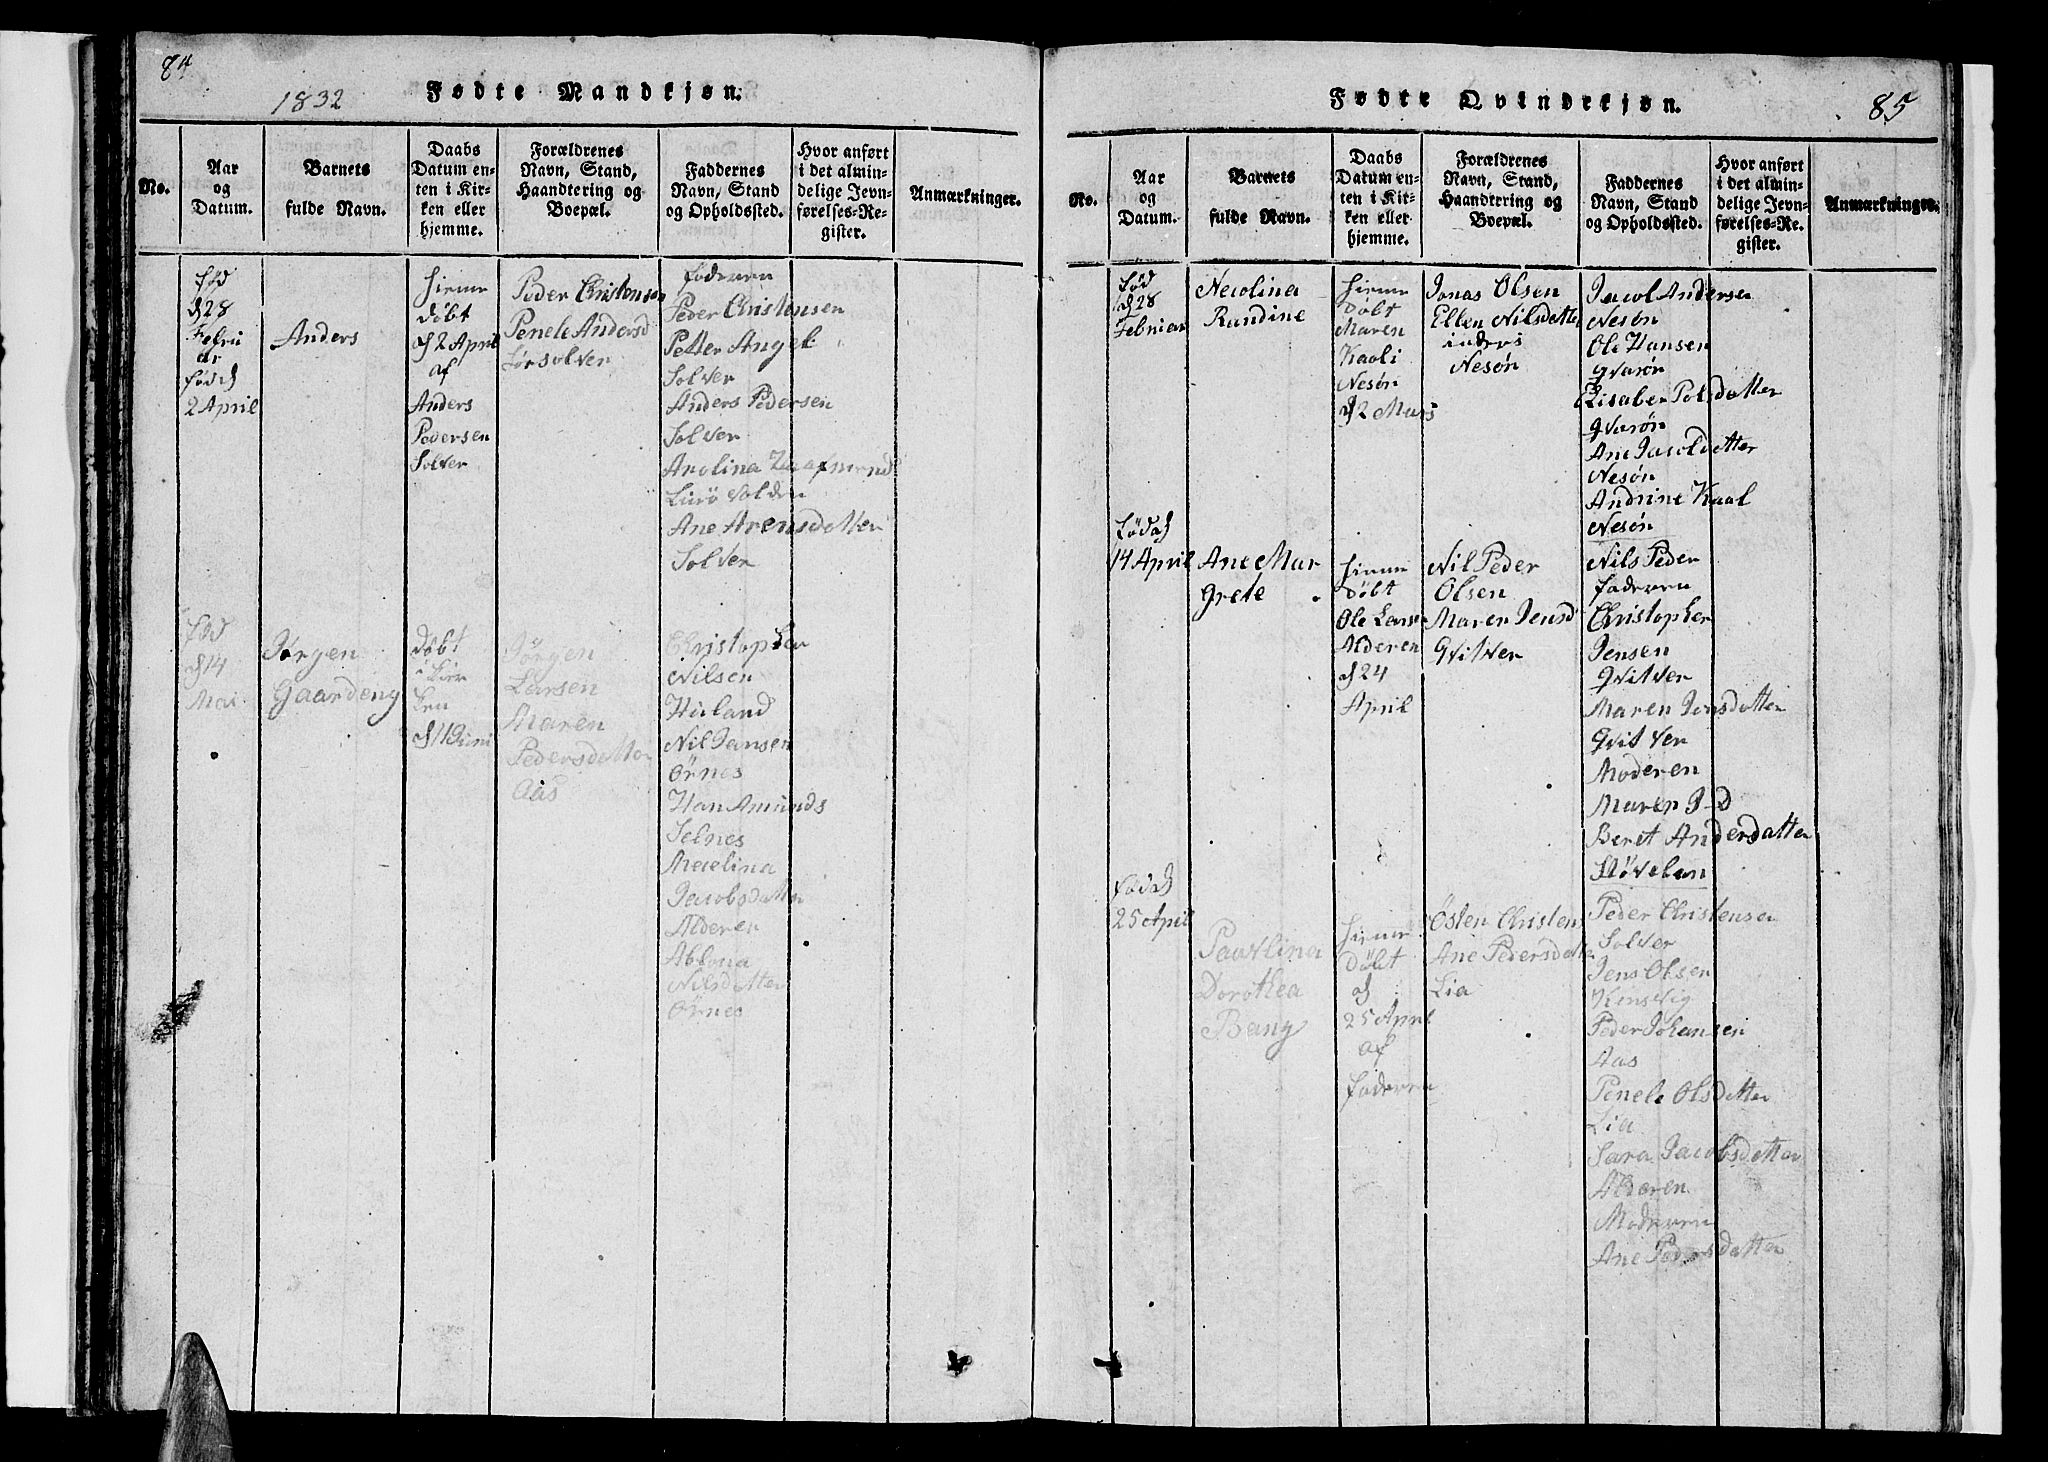 84
1832
Fødte Mandkjøn.
No.
Aar
og
Datum.
Barnets
fulde Navn.
Daabs
Datum en-
ten i Kir-
ken eller
hjemme.
Forældrenes
Navn, Stand,
Haandtering og
Boepæl.
Faddernes
Navn, Stand
og Opholdssted.
Hvor anført
i det almin-
delige Jevn-
førelses-Re-
gister.
Anmærkninger.
Fød
d 28
Febru
ar
Fød d
2 April
Anders
Døbt
d 2 April
af
Anders
Pedersen
Solver
Peder Christensen
Penele Andersd
Solver
Faderen
Peder Christensen
Petter Angel
Solver
Anders Pedersen
Solver
Anolina
Ane Arensdatter
Solver
Fød
d 14
Mai
Jørgen
Gaardeng
Døbt
i Kir
ken
d 11 Juni
Jørgen
Larsen
Maren
Pedersdatter
Aas
Christopher
Nilsen
Høiland
Nil Jansen
Örnes
Han Amunds
Selnes
Mecelina
Jacobsdatter
Alderen
Ablona
Nilsdatter
Örnes
Fødte Qvindekjøn.
85
No.
Aar
og
Datum.
Barnets
fulde Navn.
Daabs
Datum en-
ten i Kir-
ken eller
hjemme.
Forældrenes
Navn, Stand,
Haandtering og
Boepæl.
Faddernes
Navn, Stand
og Opholdssted.
Hvor anført
i det almin-
delige Jevn-
førelses-Re-
gister.
Anmærkninger.
Fød
d 28
Februar
Necolina
Randine
Døbt
Maren
Kaoli
Nesøn
d 2 Mars
Jonas Olsen
Ellen Nilsdatter
inders
Nesøn
Jacob Andersen
Nesøn
Ole Hansen
Qvarøn
Elisabe Polsdatter
Qvarøn
Ane Jacobdatter
Nesøn
Andrine Kaal
Nesøn
Fød d
14 April
Ane Mar
Grete
Døbt
Ole Larsen
Alderen
d 24
April
Nil Peder
Olsen
Maren Jensd
Qvitver
Nils Peder
Faderen
Christopher
Jensen
Qvitver
Maren Jensdatter
Qvitver
Moderen
Maren J-D
Beret Andersdatter
Støvelan
Fød d
25 April
Pawlina
Dorothea
Bang
Døbt
d
25 April
af
Faderen
Østen Christens
Ane Pedersdatter
Lia
Peder Christensen
Solver
Jens Olsen
Kensvig
Peder Johansen
Aas
Penele Olsdatter
Lia
Sara Jacobsdatter
Alderen
Moderen
Ane Pedersdatter